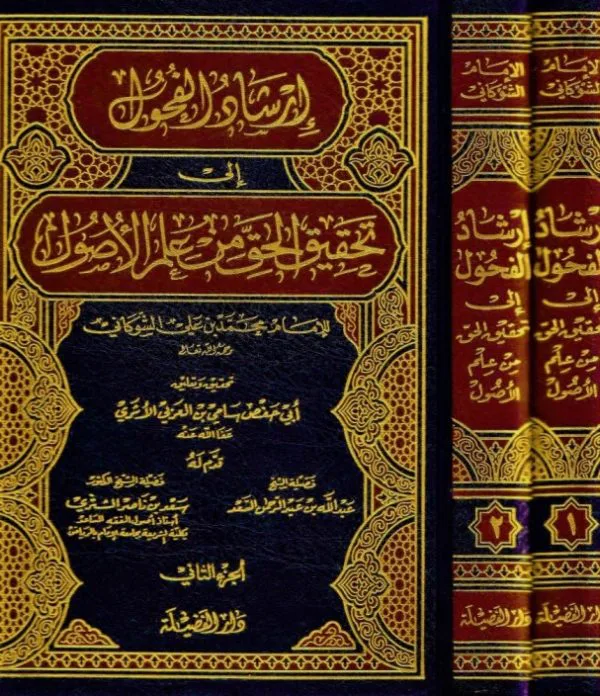 إرشاد الفحول
إلى
تحقيق الحق من علم الأصول
للإمام محمد بن علي الشوكاني
رحمه الله تعالى
تحقيق وتعليق
أبي حفص سامي بن العربي الأثري
عفا الله عنه
قدم له
فضيلة الشيخ
عبد الله بن عبد الرحمن السعد
فضيلة الشيخ الدكتور
سعد بن ناصر الشثري
أستاذ أصول الفقه المساعد
بكلية الشريعة جامعة الإمام بالرياض
الجزء الثاني
دار الفضيلة
الإمام
الشوكاني
إرشاد
الفحول
إلى
تحقيق الحق
من علم
الأصول
٢
دار الفضيلة
الإمام
الشوكاني
إرشاد
الفحول
إلى
تحقيق الحق
من علم
الأصول
١
دار الفضيلة